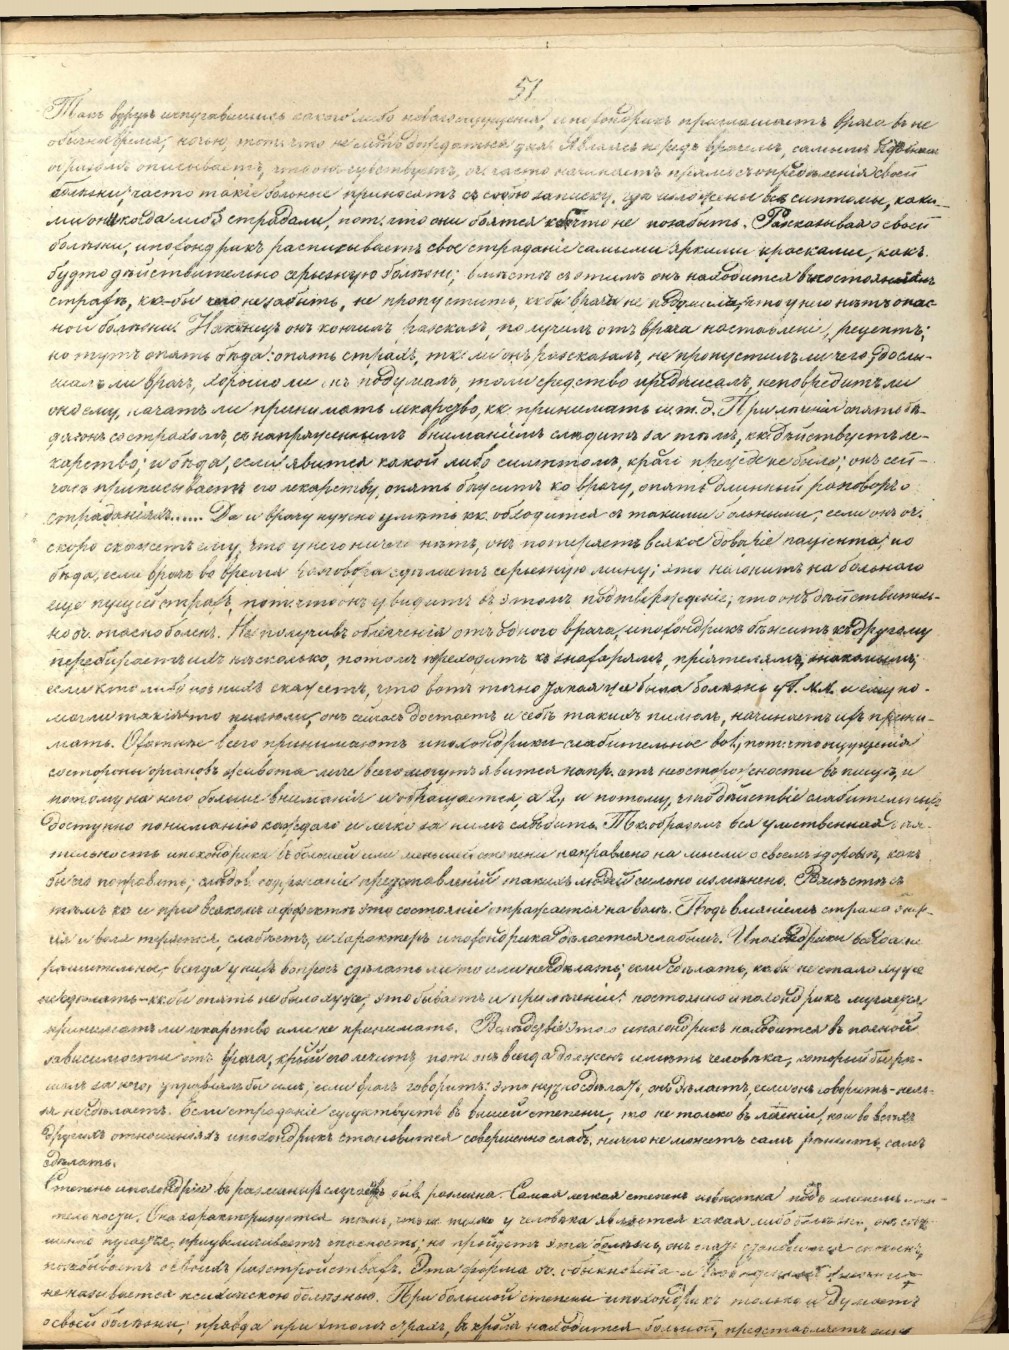 51
Такъ вдругъ испугавшись какого либо новаго ощущенія, ипохондрикъ приглашаетъ врача въ не
обычное время, ночью, потому что не можетъ дождаться дня. Являясь передъ врачемъ, самымъ
страхомъ описываетъ, что онъ чувствуетъ, оч. часто начинаетъ прямо съ опредѣленія своей
болѣзни; часто такіе больные приносятъ съ собою записку, гдѣ изложены всѣ симптомы, каки-
ми они когда либо страдали, пот. что они боятся что не позабыть. Разсказывая о своей
болѣзни, ипохондрикъ расписываетъ свое страданіе самыми яркими красками, какъ
будто дѣйствительно серьезную болѣзнь; вмѣстѣ съ этимъ онъ находится въ постоянномъ
страхѣ, кк-бы чего не забыть, не пропустить, кк бы врачъ не подумалъ, что у него нѣтъ опас-
ной болѣзни. Наконецъ онъ кончилъ разсказъ, получилъ отъ врача наставленіе, рецептъ;
но тутъ опять бѣда: опять страхъ, тк. ли онъ разсказалъ, не пропустилъ ли чего, дослы-
шалъ ли врачъ, хорошо ли онъ подумалъ, то ли средство предписалъ, неповредитъ ли
оно ему, начать ли принимать лекарство, кк. принимать и. т. д. При леченіи опять бѣ-
да: онъ со страхомъ, съ напряженнымъ вниманіемъ слѣдитъ за тѣмъ, кк. дѣйствуетъ ле-
карство; и бѣда, если явится какой либо симптомъ, краго прежде не было; онъ сей-
часъ приписываетъ его лекарству, опять бѣжитъ ко врачу, опять длинный разговоръ о
страданіяхъ...... Да и врачу нужно умѣть кк. обходится съ такими больными; если онъ оч.
скоро скажетъ ему, что у него ничего нѣтъ, онъ потеряетъ всякое довѣріе паціента; но
бѣда, если врачъ во время разговора сдѣлаетъ серьезную мину; это нагонитъ на больнаго
еще пущій страхъ, пот. что онъ увидитъ въ этомъ подтвержденіе, что онъ дѣйствитель-
но оч. опасно боленъ. Не получивъ облегченія отъ одного врача, ипохондрикъ бѣжитъ къ другому
перебираетъ ихъ нѣсколько, потомъ переходитъ къ знахарямъ, пріятелямъ, знакомымъ;
если кто либо изъ нихъ скажетъ, что вотъ точно такая же была болѣзнь у N. N. и ему по-
могли такія-то пилюли, онъ сейчасъ достаетъ и себѣ такихъ пилюль, начинаетъ ихъ прини-
мать. Охотнѣе всего принимаютъ ипохондрики слабительное во 1, пот. что ощущенія
со стороны органовъ живота легче всего могутъ явится напр. отъ неосторожности въ пищѣ, и
потому на него больше вниманія и обращается, а 2, и потому, что дѣйствіе слабительныхъ
доступно пониманію каждаго и легко за нимъ слѣдить. Тк. образомъ вся умственная дѣя-
тельность ипохондрика въ большей или меньшей степени направлена на мысли о своемъ здоровьѣ, какъ
бы его поправить; содержаніе представленій такихъ людей сильно измѣнено. Вмѣстѣ съ
тѣмъ кк и при всякомъ аффектѣ это состояніе отражается на волѣ. Подъ вліяніемъ страха энер-
гія и воля теряется, слабѣетъ, и характеръ ипохондрика дѣлается слабымъ. Ипохондрики всегда не
рѣшительны, всегда у нихъ вопросъ сдѣлать ли то или не сдѣлать; если сдѣлать, кк бы не стало хуже
не сдѣлать - кк бы опять не было хуже, это бываетъ и при леченіи: постоянно ипохондрикъ мучается
принимать ли лекарство или не принимать. Вслѣдствіе этого ипохондрикъ находится въ полной
зависимости отъ врача, крый его лечитъ пот. онъ всегда долженъ имѣть человѣка, который бы рѣ-
шалъ за него, управлялъ бы имъ, если врачъ говоритъ: это нужно сдѣлать, онъ дѣлаетъ, если онъ говоритъ - нель-
зя не сдѣлаетъ. Если страданіе существуетъ въ высшей степени, то не только въ леченіи, но и во всѣхъ
другихъ отношеніяхъ ипохондрикъ становится совершенно слабъ, ничего не можетъ самъ рѣшить, самъ
сдѣлать.
Степень ипохондріи въ различныхъ случаяхъ быв. различна. Самая легкая степень извѣстна подъ именемъ
тельности. Она характеризуется тѣмъ, что кк только у человѣка является какая либо болѣзнь, онъ
пугается, преувеличиваетъ опасность; но пройдетъ эта болѣзнь, онъ опять становится спокоенъ,
позабываетъ о своихъ разстройствахъ. Эта форма оч. обыкновенна и
не называется психическою болѣзнью. При большей степени ипохондрикъ только и думаетъ
о своей болѣзни; правда при этомъ страхъ, въ кромъ находится больной, представляетъ